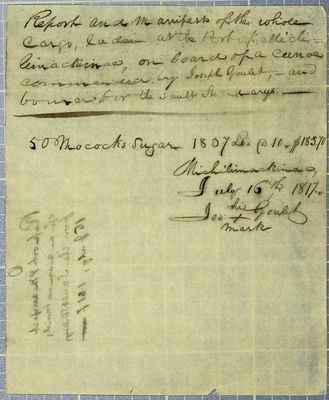 Report and Manifest of the whole
Cargo, laden at the Port of Michili-
limackinac, on board of a Canoe
commanded by Joseph Goulet, and
bound for the Sault Ste Marys.—
50 Mococks Sugar 1837 Lbs @ 10 - $183.70
Michilimackinac,
July 16th 1817.
his
Jos + Goulet
mark